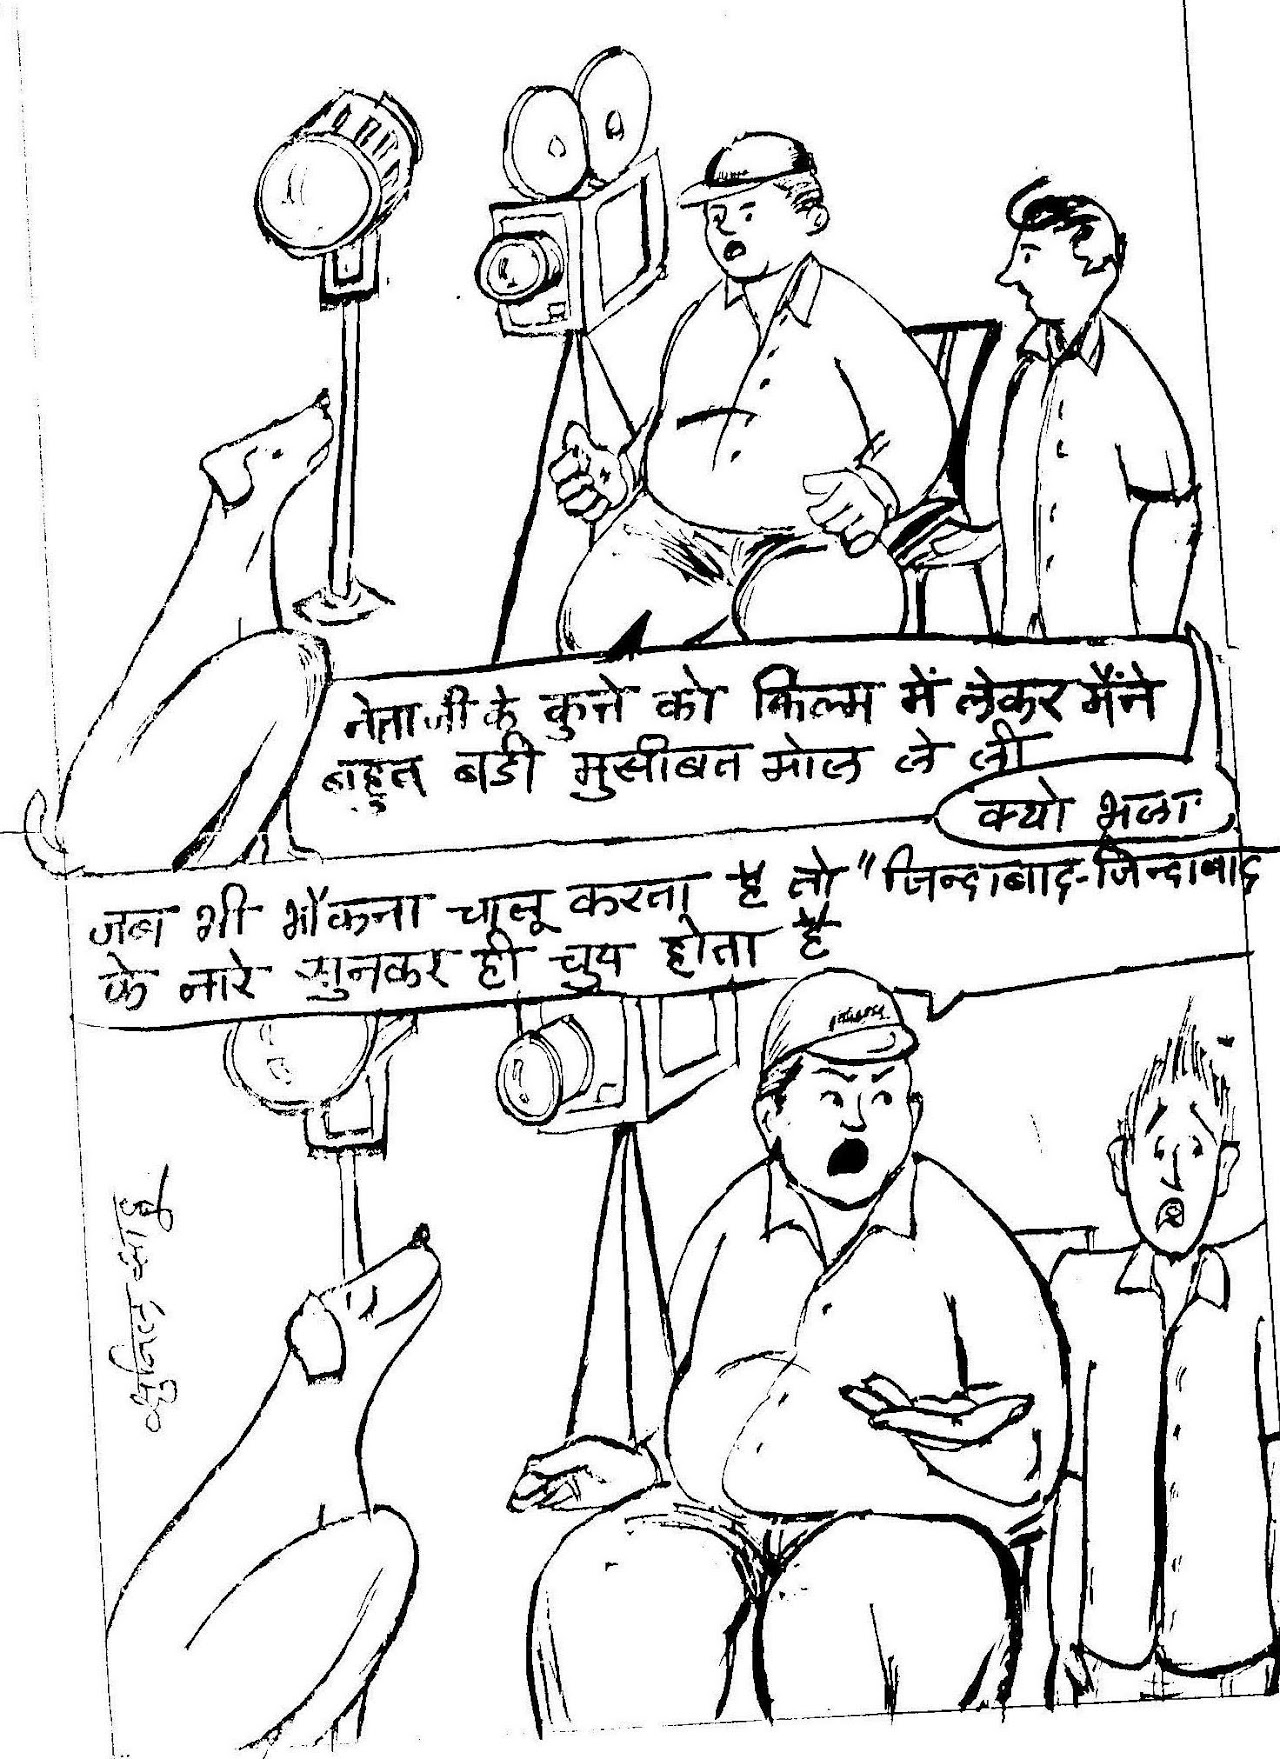 नेताजी के कुत्ते को फिल्म में लेकर मैंने
बहुत बडी मुसीबत मोल ले ली
क्यो भला
जब भी भौंकना चालू करता है तो "जिन्दाबाद-जिन्दाबाद
के नारे सुनकर ही चुप होता है
सुनिल